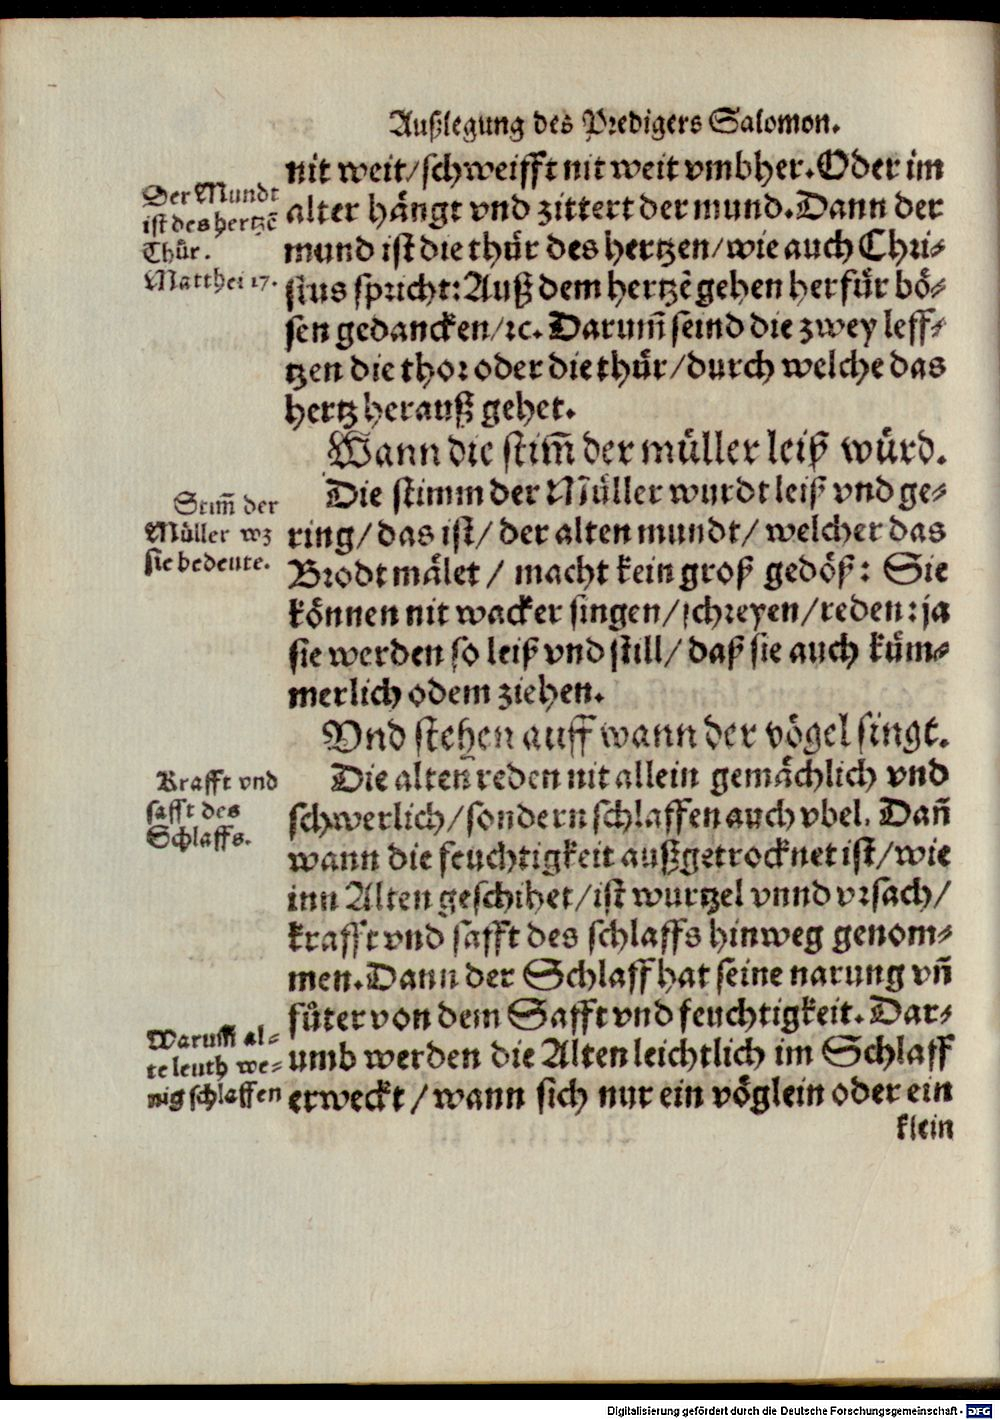 Außlegung des Predigers Salomon.
nit weit/schweifft nit weit vmbher. Oder im
alter hängt vnd zittert der mund. Dann der
mund ist die thür des hertzen/wie auch Chri-
stus spricht: Auß dem hertzẽ gehen herfür bö-
sen gedancken/ꝛc. Darum̃ seind die zwey leff-
tzen die thor oder die thür/durch welche das
hertz herauß gehet.
Der Mundt
ist des hertzẽ
Thür.
Matthei 17.
Wann die stim̃ der müller leiß würd.
Die stimm der Müller wurdt leiß vnd ge-
ring/ das ist/ der alten mundt/ welcher das
Brodt mälet / macht kein groß gedöß: Sie
können nit wacker singen/schreyen/reden: ja
sie werden so leiß vnd still/ daß sie auch küm-
merlich odem ziehen.
Stim̃ der
Müller wz
sie bedeute.
Vnd stehen auff wann der vögel singt.
Die alten reden nit allein gemächlich vnd
schwerlich/sondern schlaffen auch vbel. Dañ
wann die feuchtigkeit außgetrocknet ist/wie
inn Alten geschihet/ist wurtzel vnnd vrsach/
krafft vnd safft des schlaffs hinweg genom-
men. Dann der Schlaff hat seine narung vñ
fůter von dem Safft vnd feuchtigkeit. Dar-
umb werden die Alten leichtlich im Schlaff
erweckt / wann sich nur ein vöglein oder ein
klein
Krafft vnd
safft des
Schlaffs.
Warum̃ al-
te leuth we-
nig schlaffen
Digitalisierung gefördert durch die Deutsche Forschungsgemeinschaft - DFG